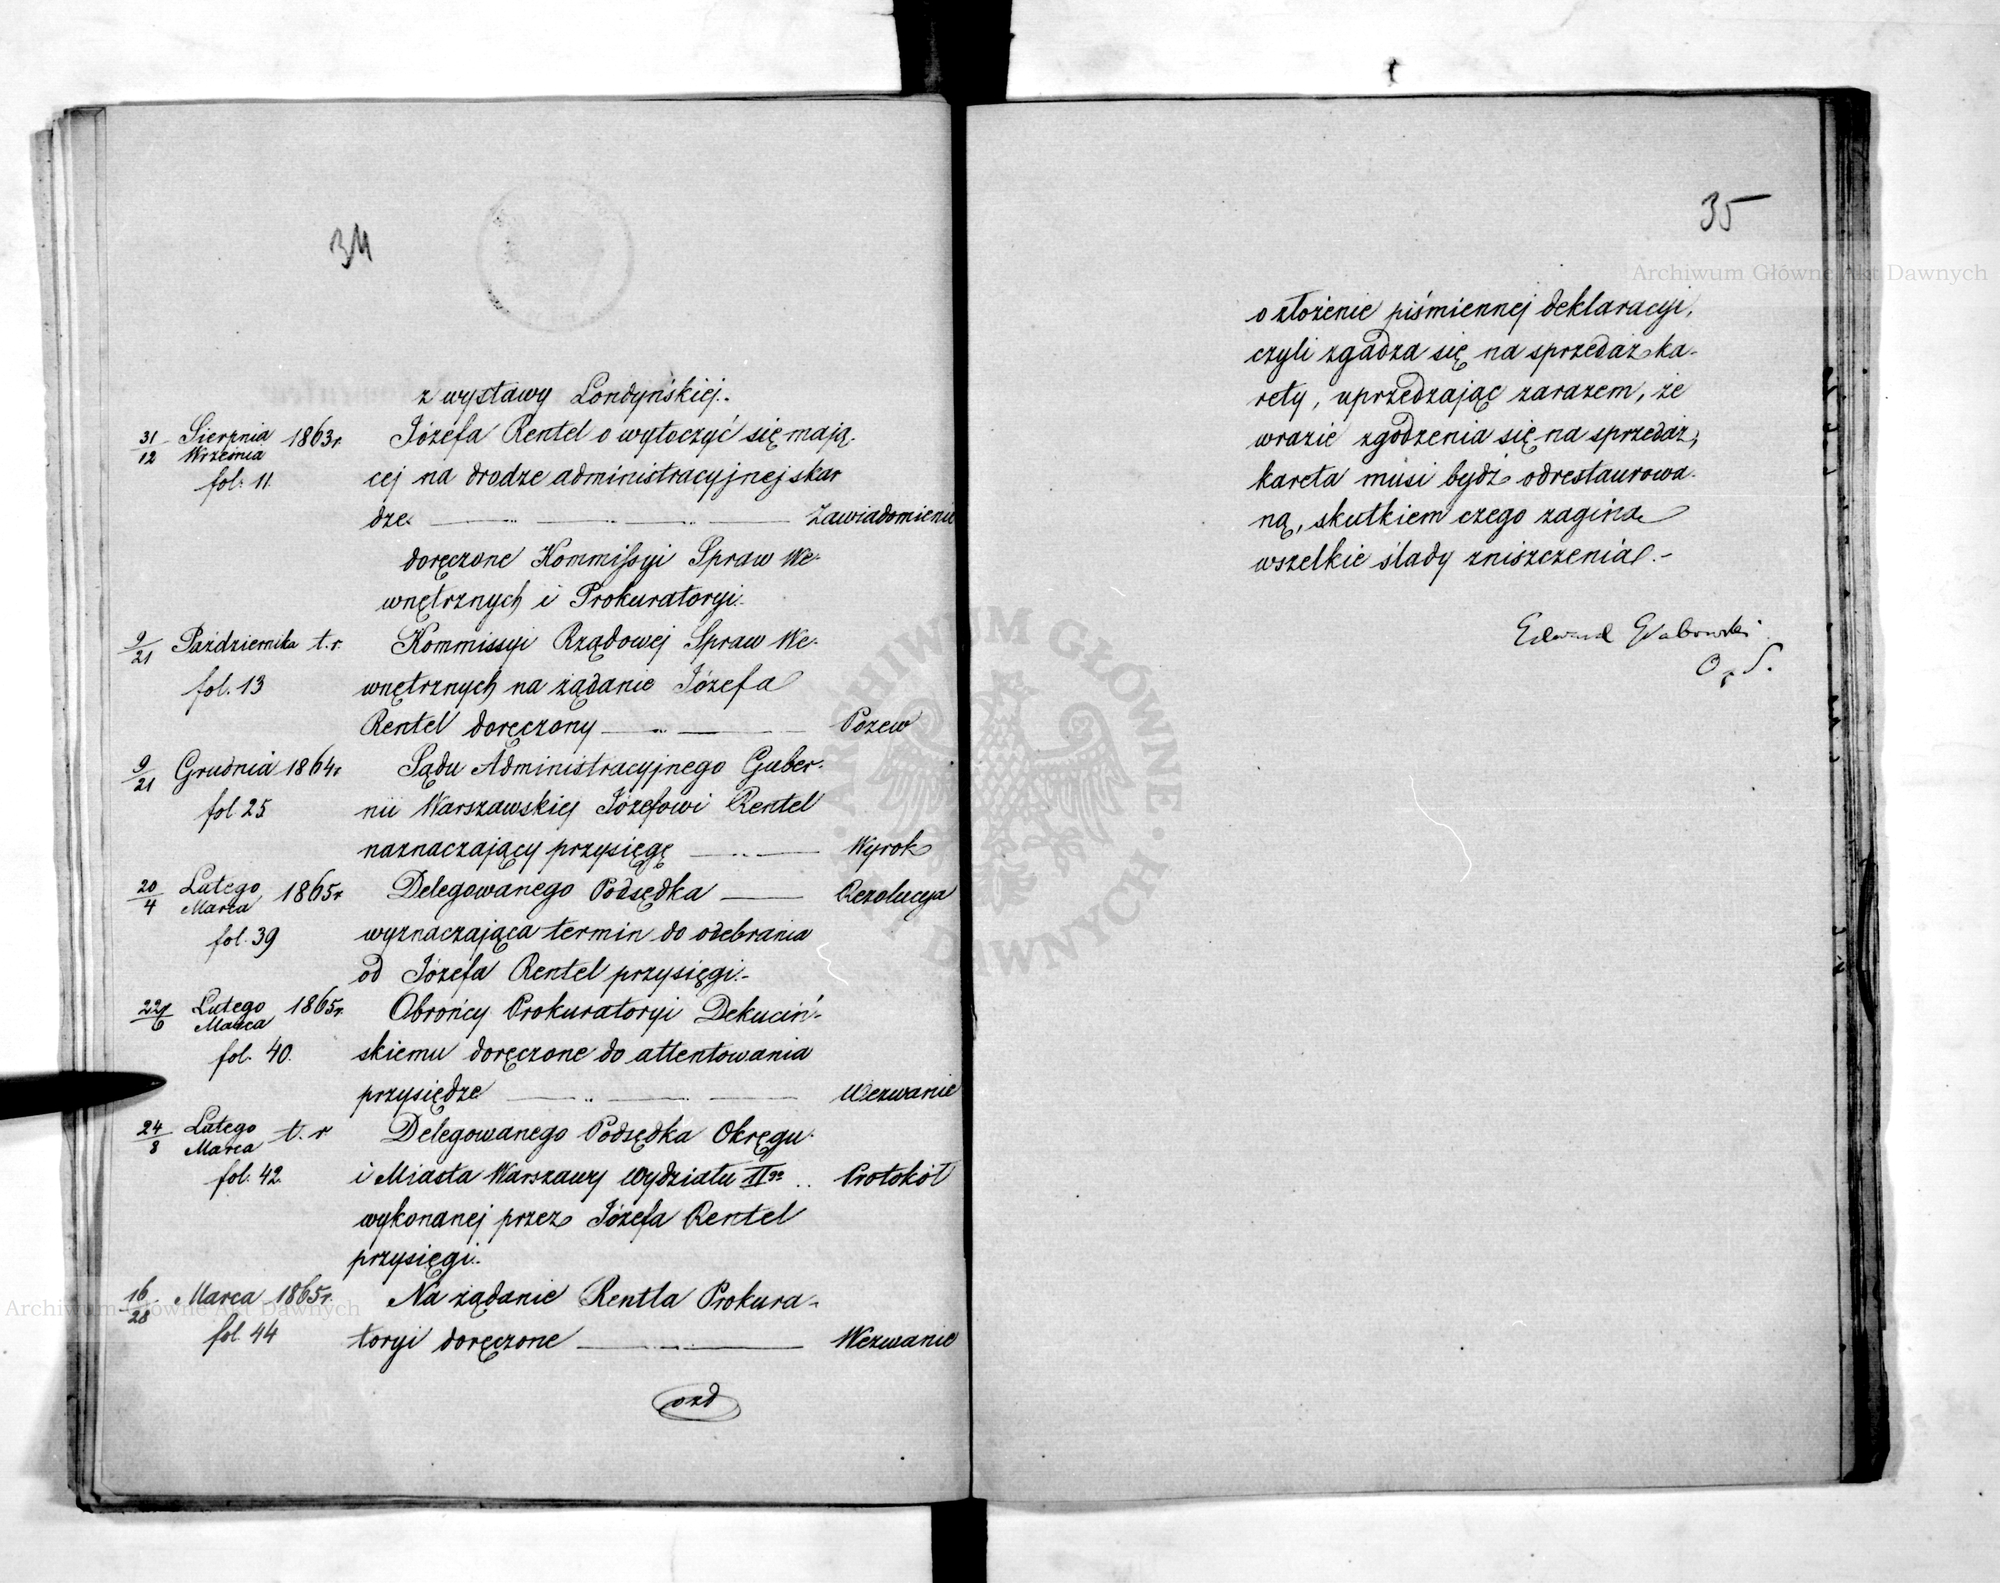 34
z wystawy Londyńskiej.-
31/12 Sierpnia Września 1863 r. Józefa Rentel o wytoczyć się mają-
fol: 11. cej na drodze administracyjnej skar
dze. Zawiadomienie
doręczone Kommissyi Spraw We-
wnętrznych i Prokuratoryi.
9/21 Października t. r. Kommissyi Rządowej Spraw We-
fol. 13 wnętrznych na żądanie Józefa
Rentel doręczony Pozew
9/21 Grudnia 1864 r Sądu Administracyjnego Guber-
fol 25 nii Warszawskiej Józefowi Rentel
naznaczający przysięgę Wyrok
20/4 Lutego Marca 1865 r Delegowanego Podsędka Rezolucya
fol. 39 wyznaczająca termin do odebrania
od Józefa Rentel przysięgi.-
22/6 Lutego Marca 1865 r. Obrońcy Prokuratoryi Dekuciń-
fol. 40. skiemu doręczone do attentowania
przysiędze Wezwanie
24/8 Lutego Marca t. r Delegowanego Podsędka Okręgu
fol. 42. i Miasta Warszawy Wydziału II go .. Protokół
wykonanej przez Józefa Rentel
przysięgi.
16/28 Marca 1865 r. Na żądanie Rentla Prokura-
fol. 44 toryi doręczone Wezwanie
35
o złożenie piśmiennej deklaracyi,
czyli zgadza się na sprzedaż ka-
rety, uprzedzając zarazem, że
wrazie zgodzenia się na sprzedaż,
kareta musi bydź odrestaurowa-
ną, skutkiem czego zaginą
wszelkie ślady zniszczenia.-
Edward Grabowski
O. p. S.
Archiwum Główne Akt Dawnych
Archiwum Główne Akt Dawnych
ARCHIWUM GŁÓWNE AKT DAWNYCH